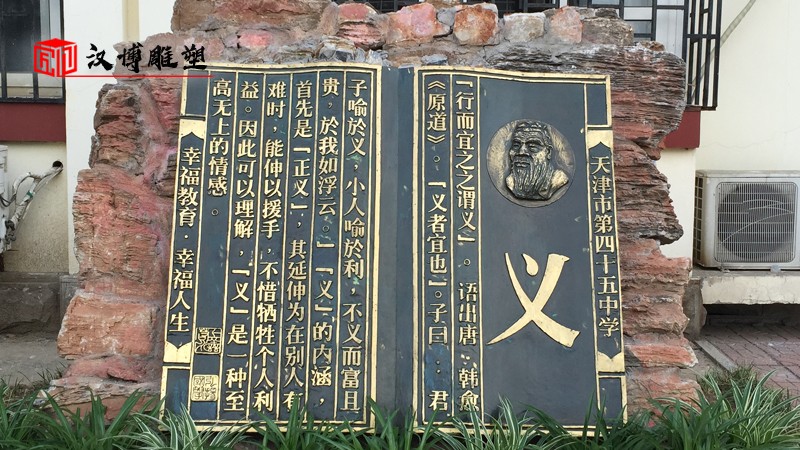 汉博雕塑
天津市第四十五中学
义
「行而宜之之谓义」。语出唐：韩愈
《原道》。「义者宜也」。子曰：君
子喻於义，小人喻於利，不义而富且
贵，於我如浮云。」「义」的内涵，
首先是「正义」，其延伸为在别人有
难时，能伸以援手，不惜牺牲个人利
益。因此可以理解，「义」是一种至
高无上的情感。
幸福教育·幸福人生